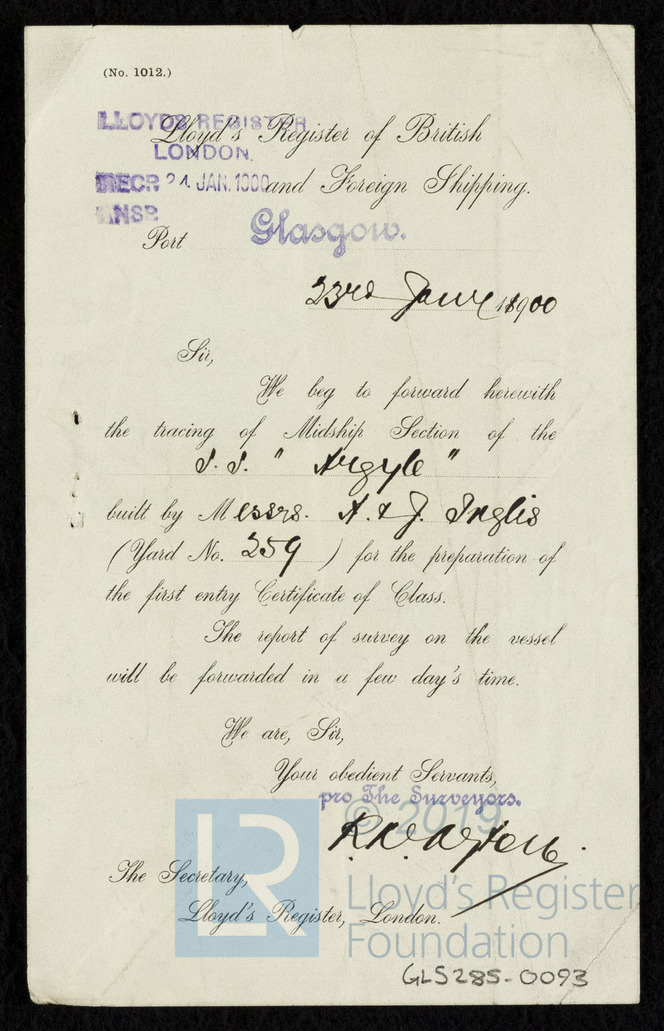 (No. 1012.)
LLOYDS REGISTER
LONDON.
RECR 24 JAN. 1900
ANSR
Lloyd's Register of British
and Foreign Shipping.
Port Glasgow.
23rd Jany 1900
Sir,
We beg to forward herewith
the tracing of Midship Section of the
S.S. " Argyle "
built by Messrs. A. & J. Inglis
(Yard No. 259 ) for the preparation of
the first entry Certificate of Class.
The report of survey on the vessel
will be forwarded in a few day's time.
We are, Sir,
Your obedient Servants,
pro The Surveyors.
The Secretary,
Lloyd's Register, London.
© 2019
LR
Lloyd's Register
Foundation
GLS285-0093